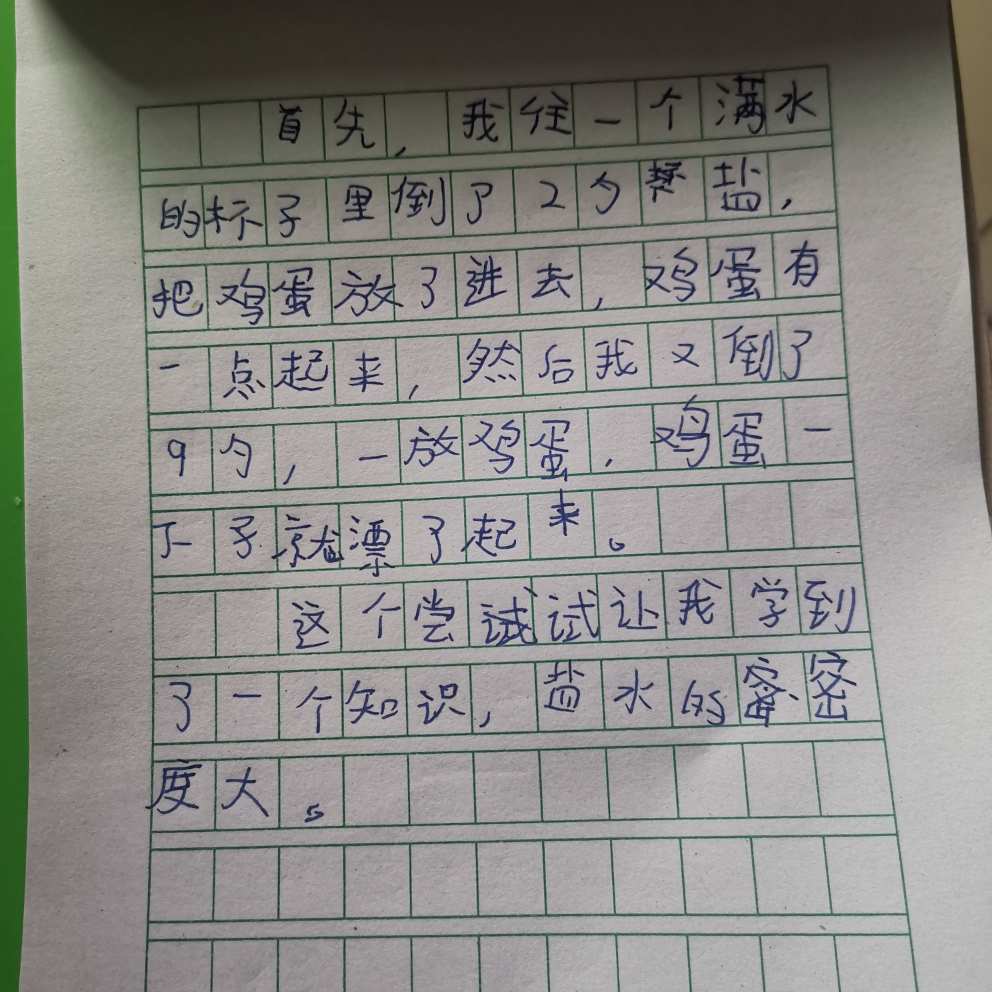 首先,我往一个满水
的杯子里倒了2勺盐,
把鸡蛋放了进去,鸡蛋有
一点起来,然后我又倒了
9勺,一放鸡蛋,鸡蛋一
下子就漂了起来。
这个尝试试让我学到
了一个知识,盐水的密
度大。